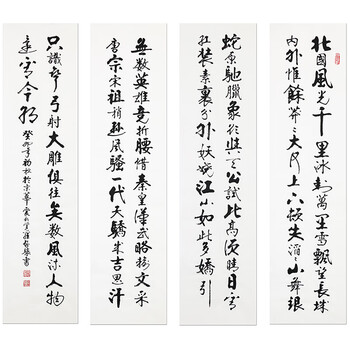 北國風光千里冰封萬里雪飄望長城
内外惟餘莽莽大河上下頓失滔滔山舞銀
蛇原馳臘象欲與天公試比高須晴日看
紅裝素裹分外妖嬈江山如此多嬌引
無數英雄競折腰惜秦皇漢武略輸文采
唐宗宋祖稍遜風騷一代天驕成吉思汗
只識彎弓射大雕俱往矣數風流人物
還看今朝